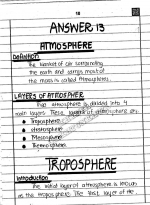 18
ANSWER 13
ATMOSPHERE
Definition
The blanket of air surrounding
the earth and carries most of
the mass is called Atmosphere.
LAYERS OF ATMOSPHERE
The atmosphere is divided into 4
main layers. These layers of atmosphere are:
Troposphere
Stratosphere
Mesosphere
Thermosphere
TROPOSPHERE
Introduction
The initial layer of atmosphere is known
as the troposphere. The layer of the